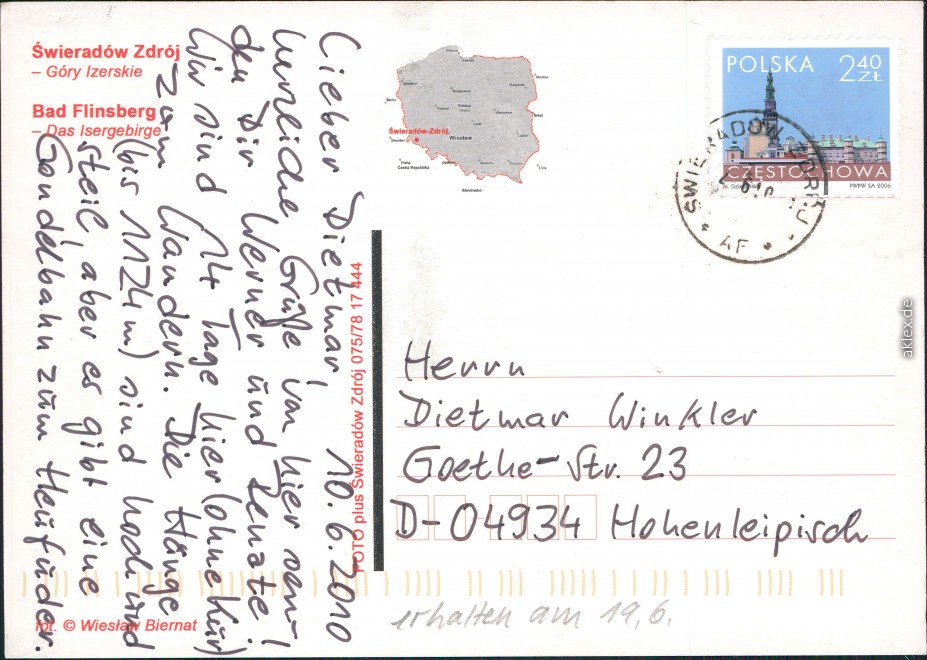 Świeradów Zdrój
– Góry Izerskie
Bad Flinsberg
– Das Isergebirge
Lieber Dietmar, 10.6.2010
herzliche Grüße von hier sen-
den Dir Werner und Renate!
Wir sind 14 Tage hier (ohne Kur)
zum Wandern. Die Hänge
(bis 1124m) sind hoch und
steil aber es gibt eine
Gondelbahn zum Heufuder.
fot. © Wiesław Biernat
FOTO plus Świeradów Zdrój 075/78 17 444
Świeradów-Zdrój
Wrocław
POLSKA 240 ZŁ
CZĘSTOCHOWA
PWPW SA 2006
ŚWIERADÓW ZDRÓJ
AF
Herrn
Dietmar Winkler
Goethe-Str. 23
D-04934 Hohenleipisch
erhalten am 19.6.
aklex.de